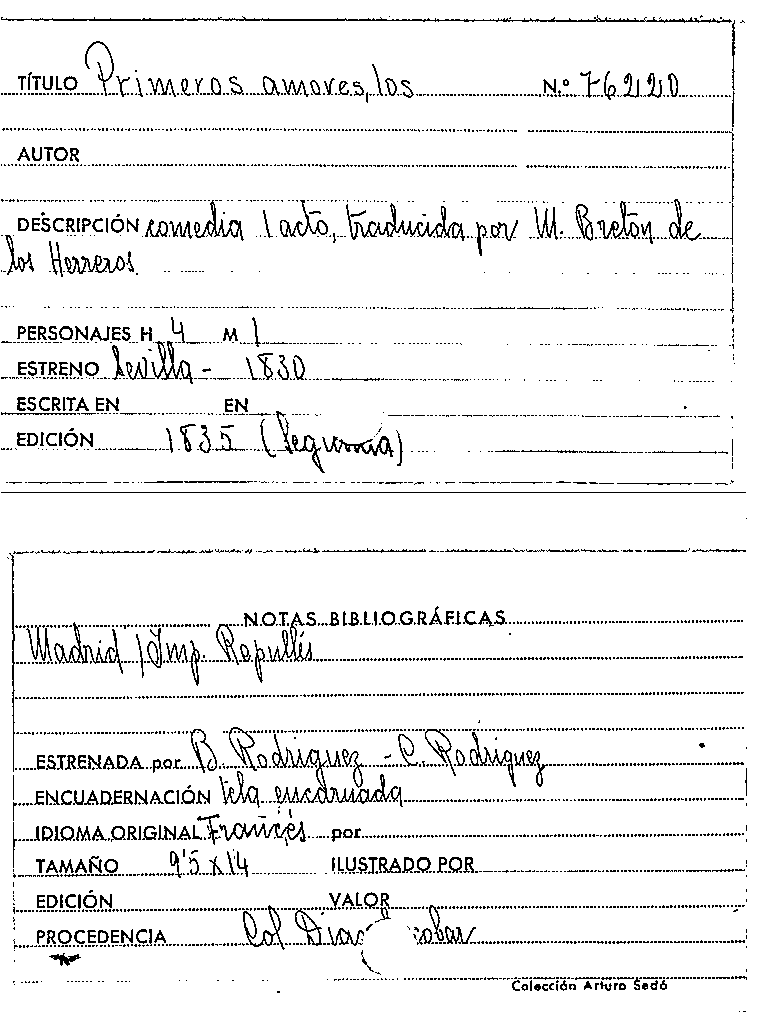 TÍTULO Primeros amores, los N.º 76220
AUTOR
DESCRIPCIÓN comedia 1 acto, traducida por M. Breton de
los Herreros.
PERSONAJES H 4 M 1
ESTRENO Sevilla - 1830
ESCRITA EN EN
EDICIÓN 1835 (Segunda)
NOTAS BIBLIOGRÁFICAS
Madrid / Imp. Repullés
ESTRENADA por B. Rodriguez - C. Rodriguez
ENCUADERNACIÓN tela encarnada
IDIOMA ORIGINAL Francés por
TAMAÑO 9'5 x 14 ILUSTRADO POR
EDICIÓN VALOR
PROCEDENCIA Col Diaz cobar
Colección Arturo Sedó